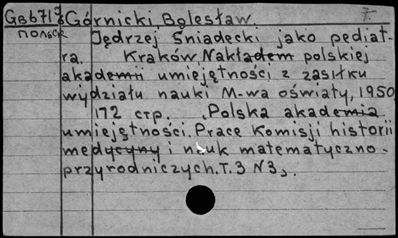 Gbb713 Górnicki Bolesław. 7.
польск Jędrzej Śniadecki jako pediat-
ra. Kraków, Nakładem polskiej
akademii umiejętności z zasiłku
wydziału nauki M-wa oświaty, 1950
172 стр. (Polska akademia
umiejętności. Prace Komisji historii
medycyny i nauk matematyczno-
przyrodniczych. T.3 N3).